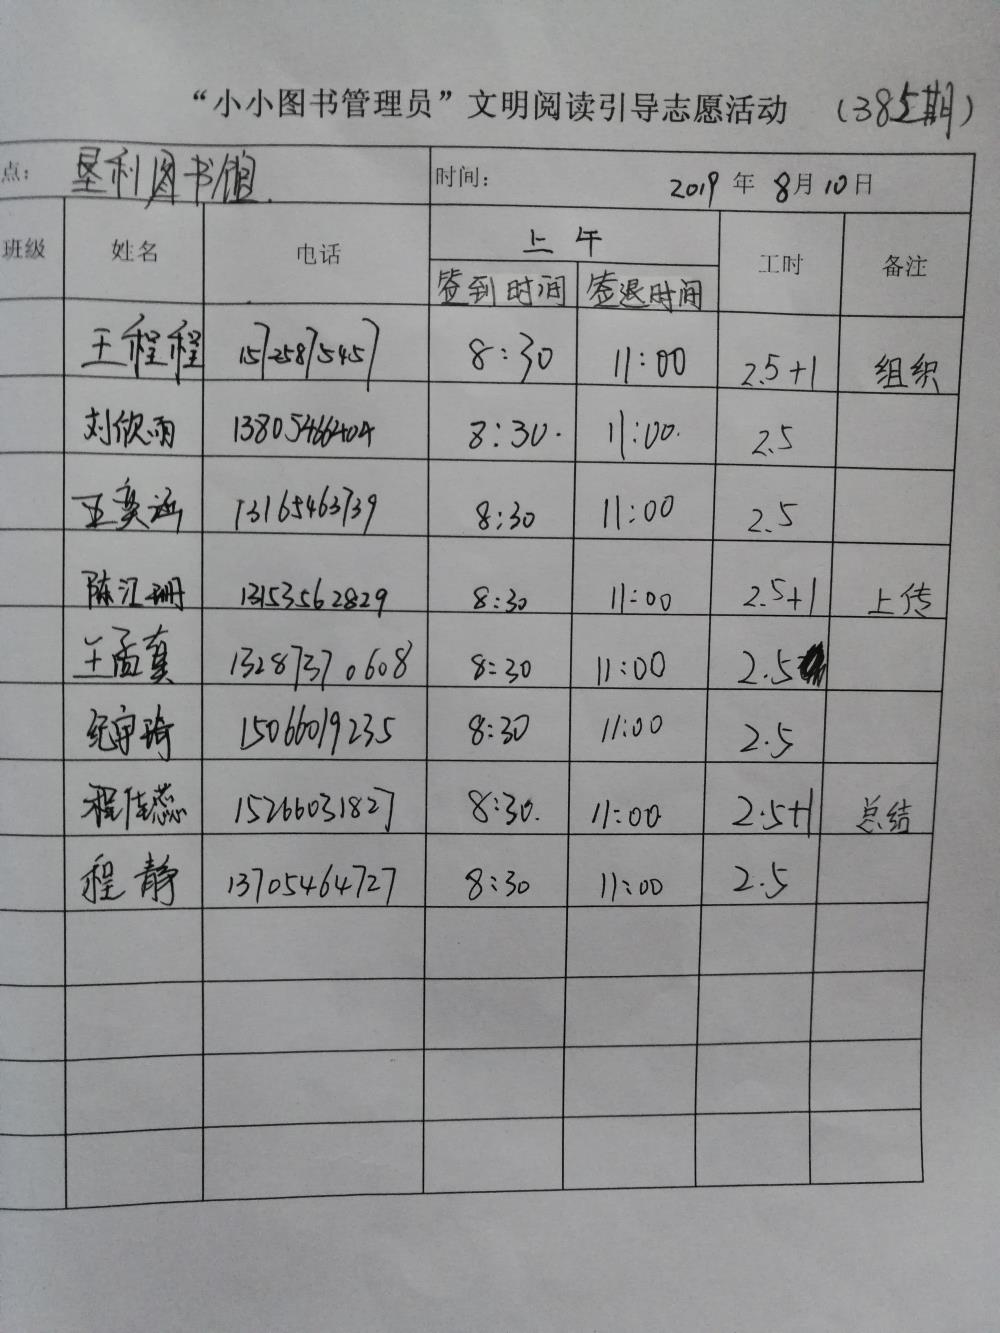 “小小图书管理员”文明阅读引导志愿活动 (385期)
点: 垦利图书馆. 时间: 2019 年 8月10日
班级 姓名 电话 上午 工时 备注
签到时间 签退时间
王程程 15725875457 8:30 11:00 2.5+1 组织
刘欣雨 13805466404 8:30. 11:00. 2.5
王奕涵 13165463739 8:30 11:00 2.5
陈江珊 13153562829 8:30 11:00 2.5+1 上传
王孟真 13287370608 8:30 11:00 2.5
纪宇琦 15066019235 8:30 11:00 2.5
程佳蕊 15266031827 8:30. 11:00 2.5+1 总结
程静 13705464727 8:30 11:00 2.5